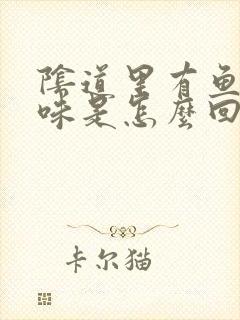 陰道里有鱼
味是怎麼回
卡尔猫